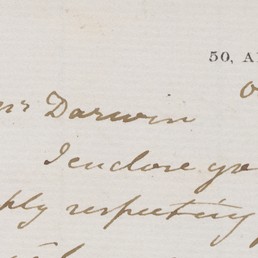 50, A
Darwin
I enclose yo
ply respecting